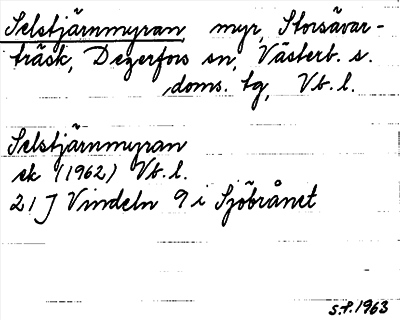 Selstjärnmyran myr, Storsävar-
träsk, Degerfors sn, Västerb. s.
doms. tg, Vb. l.
Selstjärnmyran
ek (1962) Vb. l.
21 J Vindeln 9 i Sjöbrånet
S.P. 1963